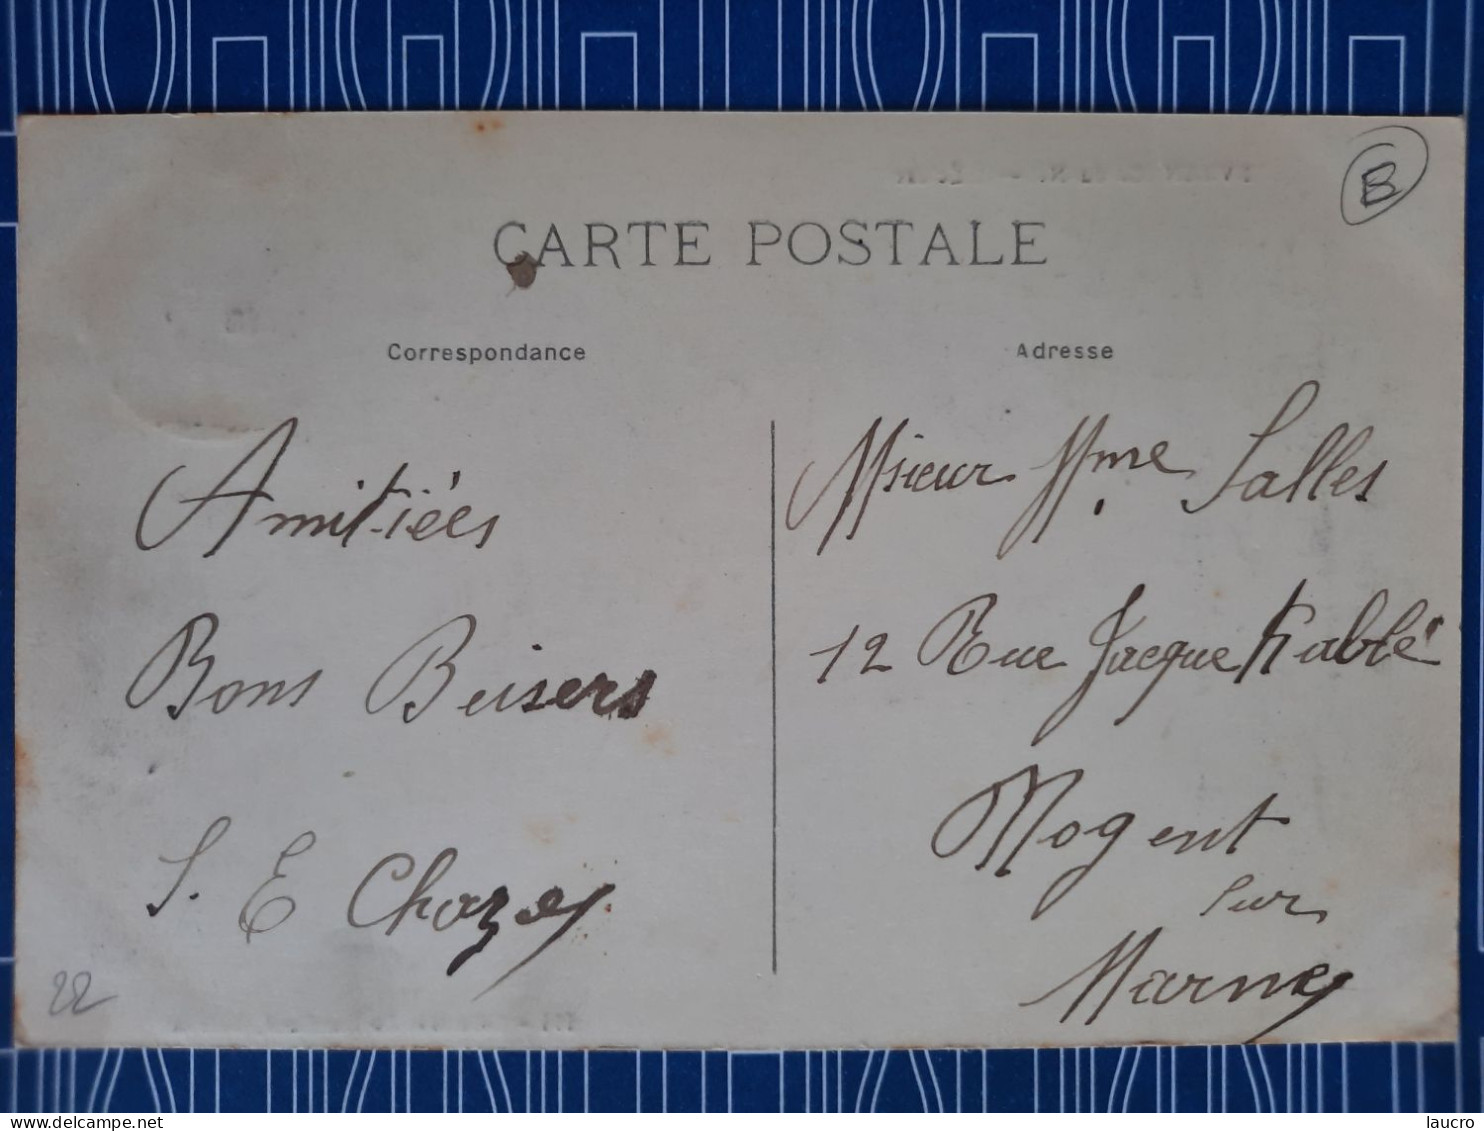 B
CARTE POSTALE
Correspondance
Adresse
Amitiées
Bons Beisers
S. E Chazes
Msieur Mme Salles
12 Rue Jacque Kablé
Nogent
sur
Marne
22
laucro